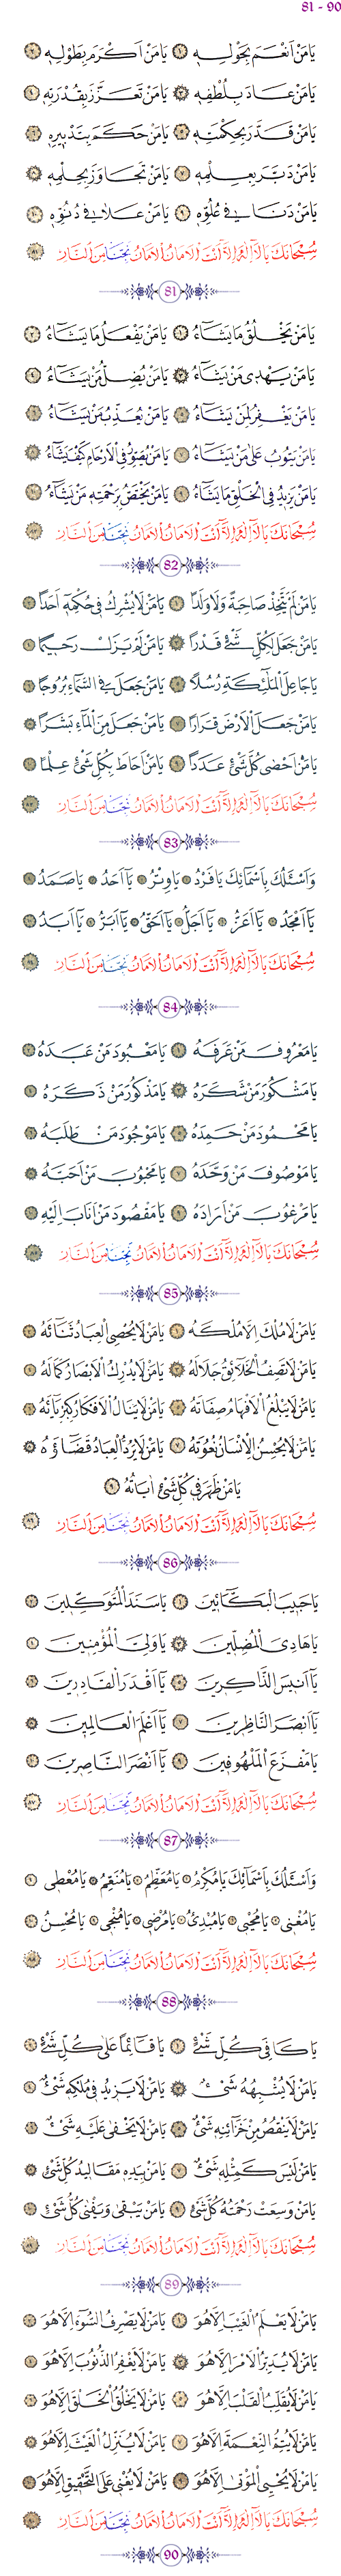 81 - 90
يَامَنْ اَنْعَمَ بِحَوْلِه۪ ﴿١﴾ يَامَنْ اَكْرَمَ بِطَوْلِه۪ ﴿٢﴾
يَامَنْ عَادَ بِلُطْفِه۪ ﴿٣﴾ يَامَنْ تَعَزَّزَ بِقُدْرَتِه۪ ﴿٤﴾
يَامَنْ قَدَّرَ بِحِكْمَتِه۪ ﴿٥﴾ يَامَنْ حَكَمَ بِتَدْب۪يرِه۪ ﴿٦﴾
يَامَنْ دَبَّرَ بِعِلْمِه۪ ﴿٧﴾ يَامَنْ تَجَاوَزَ بِحِلْمِه۪ ﴿٨﴾
يَامَنْ دَنَا ف۪ي عُلُوِّه۪ ﴿٩﴾ يَامَنْ عَلَا ف۪ي دُنُوِّه۪ ﴿١٠﴾
سُبْحَانَكَ يَا لَآ اِلٰهَ اِلَّا اَنْتَ الْاَمَانُ الْاَمَانُ نَجِّنَا مِنَ النَّارِ ﴿٨١﴾
81
يَامَنْ يَخْلُقُ مَا يَشَٓاءُ ﴿١﴾ يَامَنْ يَفْعَلُ مَا يَشَٓاءُ ﴿٢﴾
يَامَنْ يَهْد۪ي مَنْ يَشَٓاءُ ﴿٣﴾ يَامَنْ يُضِلُّ مَنْ يَشَٓاءُ ﴿٤﴾
يَامَنْ يَغْفِرُ لِمَنْ يَشَٓاءُ ﴿٥﴾ يَامَنْ يُعَذِّبُ مَنْ يَشَٓاءُ ﴿٦﴾
يَامَنْ يَتُوبُ عَلٰى مَنْ يَشَٓاءُ ﴿٧﴾ يَامَنْ يُصَوِّرُ فِي الْاَرْحَامِ كَيْفَ يَشَٓاءُ ﴿٨﴾
يَامَنْ يَز۪يدُ فِي الْخَلْقِ مَا يَشَٓاءُ ﴿٩﴾ يَامَنْ يَخْتَصُّ بِرَحْمَتِه۪ مَنْ يَشَٓاءُ ﴿١٠﴾
سُبْحَانَكَ يَا لَآ اِلٰهَ اِلَّا اَنْتَ الْاَمَانُ الْاَمَانُ نَجِّنَا مِنَ النَّارِ ﴿٨٢﴾
82
يَامَنْ لَمْ يَتَّخِذْ صَاحِبَةً وَلَا وَلَدًا ﴿١﴾ يَامَنْ لَا يُشْرِكُ ف۪ي حُكْمِه۪ٓ اَحَدًا ﴿٢﴾
يَامَنْ جَعَلَ لِكُلِّ شَيْءٍ قَدْرًا ﴿٣﴾ يَامَنْ لَمْ يَزَلْ رَح۪يمًا ﴿٤﴾
يَا جَاعِلَ الْمَلٰٓئِكَةِ رُسُلًا ﴿٥﴾ يَامَنْ جَعَلَ فِي السَّمَٓاءِ بُرُوجًا ﴿٦﴾
يَامَنْ جَعَلَ الْاَرْضَ قَرَارًا ﴿٧﴾ يَامَنْ جَعَلَ مِنَ الْمَٓاءِ بَشَرًا ﴿٨﴾
يَامَنْ اَحْصٰى كُلَّ شَيْءٍ عَدَدًا ﴿٩﴾ يَامَنْ اَحَاطَ بِكُلِّ شَيْءٍ عِلْمًا ﴿١٠﴾
سُبْحَانَكَ يَا لَآ اِلٰهَ اِلَّا اَنْتَ الْاَمَانُ الْاَمَانُ نَجِّنَا مِنَ النَّارِ ﴿٨٣﴾
83
وَاَسْئَلُكَ بِاَسْمَائِكَ يَا فَرْدُ ﴿١﴾ يَا وِتْرُ ﴿٢﴾ يَا اَحَدُ ﴿٣﴾ يَا صَمَدُ ﴿٤﴾
يَٓا اَمْجَدُ ﴿٥﴾ يَٓا اَعَزُّ ﴿٦﴾ يَٓا اَجَلُّ ﴿٧﴾ يَٓا اَحَقُّ ﴿٨﴾ يَٓا اَبَرُّ ﴿٩﴾ يَٓا اَبَدُ ﴿١٠﴾
سُبْحَانَكَ يَا لَآ اِلٰهَ اِلَّا اَنْتَ الْاَمَانُ الْاَمَانُ نَجِّنَا مِنَ النَّارِ ﴿٨٤﴾
84
يَا مَعْرُوفَ مَنْ عَرَفَهُ ﴿١﴾ يَا مَعْبُودَ مَنْ عَبَدَهُ ﴿٢﴾
يَا مَشْكُورَ مَنْ شَكَرَهُ ﴿٣﴾ يَا مَذْكُورَ مَنْ ذَكَرَهُ ﴿٤﴾
يَا مَحْمُودَ مَنْ حَمِدَهُ ﴿٥﴾ يَا مَوْجُودَ مَنْ طَلَبَهُ ﴿٦﴾
يَا مَوْصُوفَ مَنْ وَحَّدَهُ ﴿٧﴾ يَا مَحْبُوبَ مَنْ اَحَبَّهُ ﴿٨﴾
يَا مَرْغُوبَ مَنْ اَرَادَهُ ﴿٩﴾ يَا مَقْصُودَ مَنْ اَنَابَ اِلَيْهِ ﴿١٠﴾
سُبْحَانَكَ يَا لَآ اِلٰهَ اِلَّا اَنْتَ الْاَمَانُ الْاَمَانُ نَجِّنَا مِنَ النَّارِ ﴿٨٥﴾
85
يَامَنْ لَا مُلْكَ اِلَّا مُلْكُهُ ﴿١﴾ يَامَنْ لَا يُحْصِي الْعِبَادُ ثَنَٓائَهُ ﴿٢﴾
يَامَنْ لَا تَصِفُ الْخَلَٓائِقُ جَلَالَهُ ﴿٣﴾ يَامَنْ لَا يُدْرِكُ الْاَبْصَارُ كَمَالَهُ ﴿٤﴾
يَامَنْ لَا يَبْلُغُ الْاَفْهَامُ صِفَاتَهُ ﴿٥﴾ يَامَنْ لَا يَنَالُ الْاَفْكَارُ كِبْرِيَٓائَهُ ﴿٦﴾
يَامَنْ لَا يُحْسِنُ الْاِنْسَانُ نُعُوتَهُ ﴿٧﴾ يَامَنْ لَا يَرُدُّ الْعِبَادُ قَضَٓاؤَهُ ﴿٨﴾
يَامَنْ ظَهَرَ ف۪ي كُلِّ شَيْءٍ اٰيَاتُهُ ﴿٩﴾
سُبْحَانَكَ يَا لَآ اِلٰهَ اِلَّا اَنْتَ الْاَمَانُ الْاَمَانُ نَجِّنَا مِنَ النَّارِ ﴿٨٦﴾
86
يَا حَب۪يبَ الْبَكَّٓائ۪ينَ ﴿١﴾ يَا سَنَدَ الْمُتَوَكِّل۪ينَ ﴿٢﴾
يَا هَادِيَ الْمُضِلّ۪ينَ ﴿٣﴾ يَا وَلِيَّ الْمُؤْمِن۪ينَ ﴿٤﴾
يَٓا اَن۪يسَ الذَّاكِر۪ينَ ﴿٥﴾ يَٓا اَقْدَرَ الْقَادِر۪ينَ ﴿٦﴾
يَٓا اَبْصَرَ النَّاظِر۪ينَ ﴿٧﴾ يَٓا اَعْلَمَ الْعَالِم۪ينَ ﴿٨﴾
يَا مَفْزَعَ الْمَلْهُوف۪ينَ ﴿٩﴾ يَٓا اَنْصَرَ النَّاصِر۪ينَ ﴿١٠﴾
سُبْحَانَكَ يَا لَآ اِلٰهَ اِلَّا اَنْتَ الْاَمَانُ الْاَمَانُ نَجِّنَا مِنَ النَّارِ ﴿٨٧﴾
87
وَاَسْئَلُكَ بِاَسْمَائِكَ يَا مُكْرِمُ ﴿١﴾ يَا مُعَظِّمُ ﴿٢﴾ يَا مُنَعِّمُ ﴿٣﴾ يَا مُعْط۪ي ﴿٤﴾
يَا مُغْن۪ي ﴿٥﴾ يَا مُحْي۪ي ﴿٦﴾ يَا مُبْدِئُ ﴿٧﴾ يَا مُرْض۪ي ﴿٨﴾ يَا مُنْج۪ي ﴿٩﴾ يَا مُحْسِنُ ﴿١٠﴾
سُبْحَانَكَ يَا لَآ اِلٰهَ اِلَّا اَنْتَ الْاَمَانُ الْاَمَانُ نَجِّنَا مِنَ النَّارِ ﴿٨٨﴾
88
يَا كَافِيَ كُلِّ شَيْءٍ ﴿١﴾ يَا قَٓائِمًا عَلٰى كُلِّ شَيْءٍ ﴿٢﴾
يَامَنْ لَا يُشْبِهُهُ شَيْءٌ ﴿٣﴾ يَامَنْ لَا يَز۪يدُ ف۪ي مُلْكِه۪ شَيْءٌ ﴿٤﴾
يَامَنْ لَا يَنْقُصُ مِنْ خَزَٓائِنِه۪ شَيْءٌ ﴿٥﴾ يَامَنْ لَا يَخْفٰى عَلَيْهِ شَيْءٌ ﴿٦﴾
يَامَنْ لَيْسَ كَمِثْلِه۪ شَيْءٌ ﴿٧﴾ يَامَنْ بِيَدِه۪ مَقَال۪يدُ كُلِّ شَيْءٍ ﴿٨﴾
يَامَنْ وَسِعَتْ رَحْمَتُهُ كُلَّ شَيْءٍ ﴿٩﴾ يَامَنْ يَبْقٰى وَيَفْنٰى كُلُّ شَيْءٍ ﴿١٠﴾
سُبْحَانَكَ يَا لَآ اِلٰهَ اِلَّا اَنْتَ الْاَمَانُ الْاَمَانُ نَجِّنَا مِنَ النَّارِ ﴿٨٩﴾
89
يَامَنْ لَا يَعْلَمُ الْغَيْبَ اِلَّا هُوَ ﴿١﴾ يَامَنْ لَا يَصْرِفُ السُّٓوءَ اِلَّا هُوَ ﴿٢﴾
يَامَنْ لَا يُدَبِّرُ الْاَمْرَ اِلَّا هُوَ ﴿٣﴾ يَامَنْ لَا يَغْفِرُ الذُّنُوبَ اِلَّا هُوَ ﴿٤﴾
يَامَنْ لَا يُقَلِّبُ الْقَلْبَ اِلَّا هُوَ ﴿٥﴾ يَامَنْ لَا يَخْلُقُ الْخَلْقَ اِلَّا هُوَ ﴿٦﴾
يَامَنْ لَا يُتِمُّ النِّعْمَةَ اِلَّا هُوَ ﴿٧﴾ يَامَنْ لَا يُنَزِّلُ الْغَيْثَ اِلَّا هُوَ ﴿٨﴾
يَامَنْ لَا يُحْيِي الْمَوْتٰى اِلَّا هُوَ ﴿٩﴾ يَامَنْ لَا يُغْن۪ي عَلَى التَّحْق۪يقِ اِلَّا هُوَ ﴿١٠﴾
سُبْحَانَكَ يَا لَآ اِلٰهَ اِلَّا اَنْتَ الْاَمَانُ الْاَمَانُ نَجِّنَا مِنَ النَّارِ ﴿٩٠﴾
90